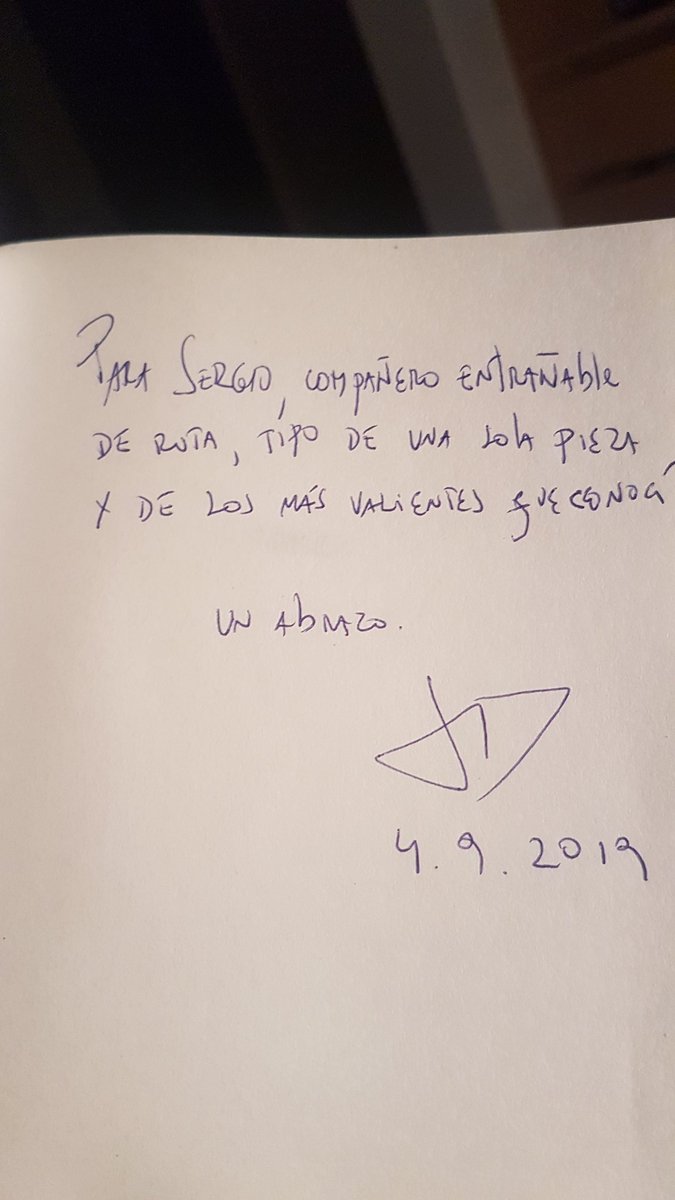 Para Sergio, compañero entrañable
de ruta, tipo de una sola pieza
y de los más valientes que conocí
Un abrazo.
4.9.2019